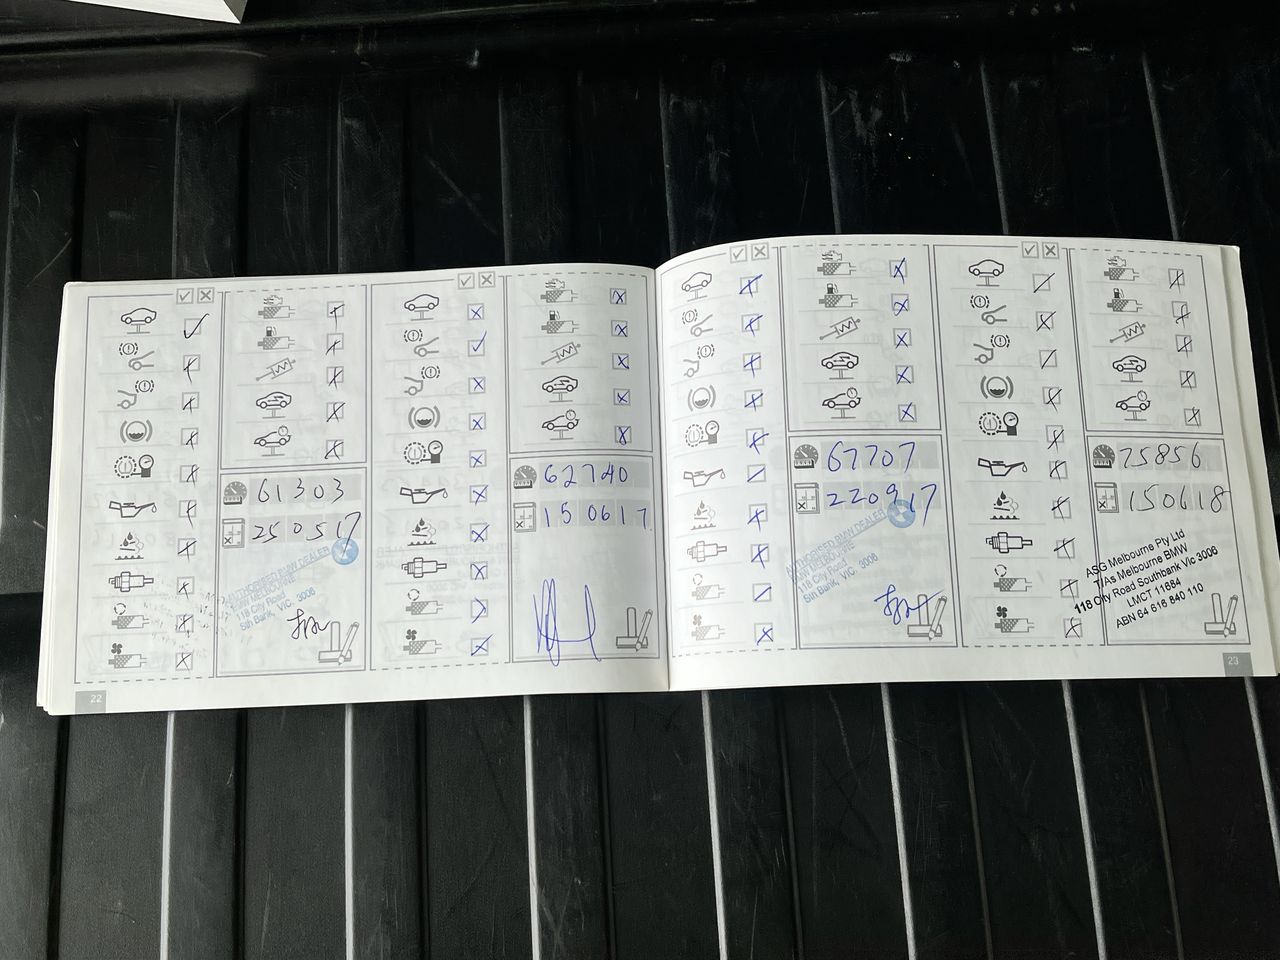 61303
250517
AUTHORISED BMW DEALER
BMW MELBOURNE
118 City Road
Sth Bank, VIC, 3006
22
62740
150617
67707
220917
AUTHORISED BMW DEALER
BMW MELBOURNE
118 City Road
Sth Bank, VIC, 3006
75856
150618
ASG Melbourne Pty Ltd
T/As Melbourne BMW
118 City Road Southbank Vic 3006
LMCT 11684
ABN 64 616 840 110
23